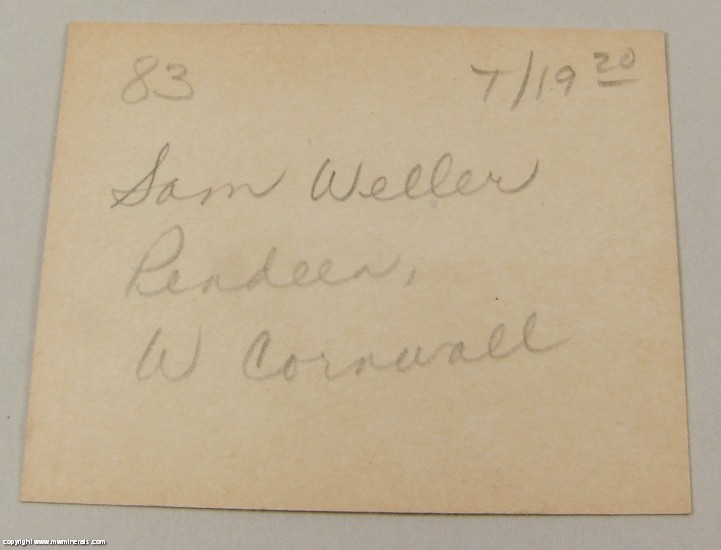 83 T/19 20
Sam Weller
Pendeen,
W Cornwall
copyright www.mwminerals.com